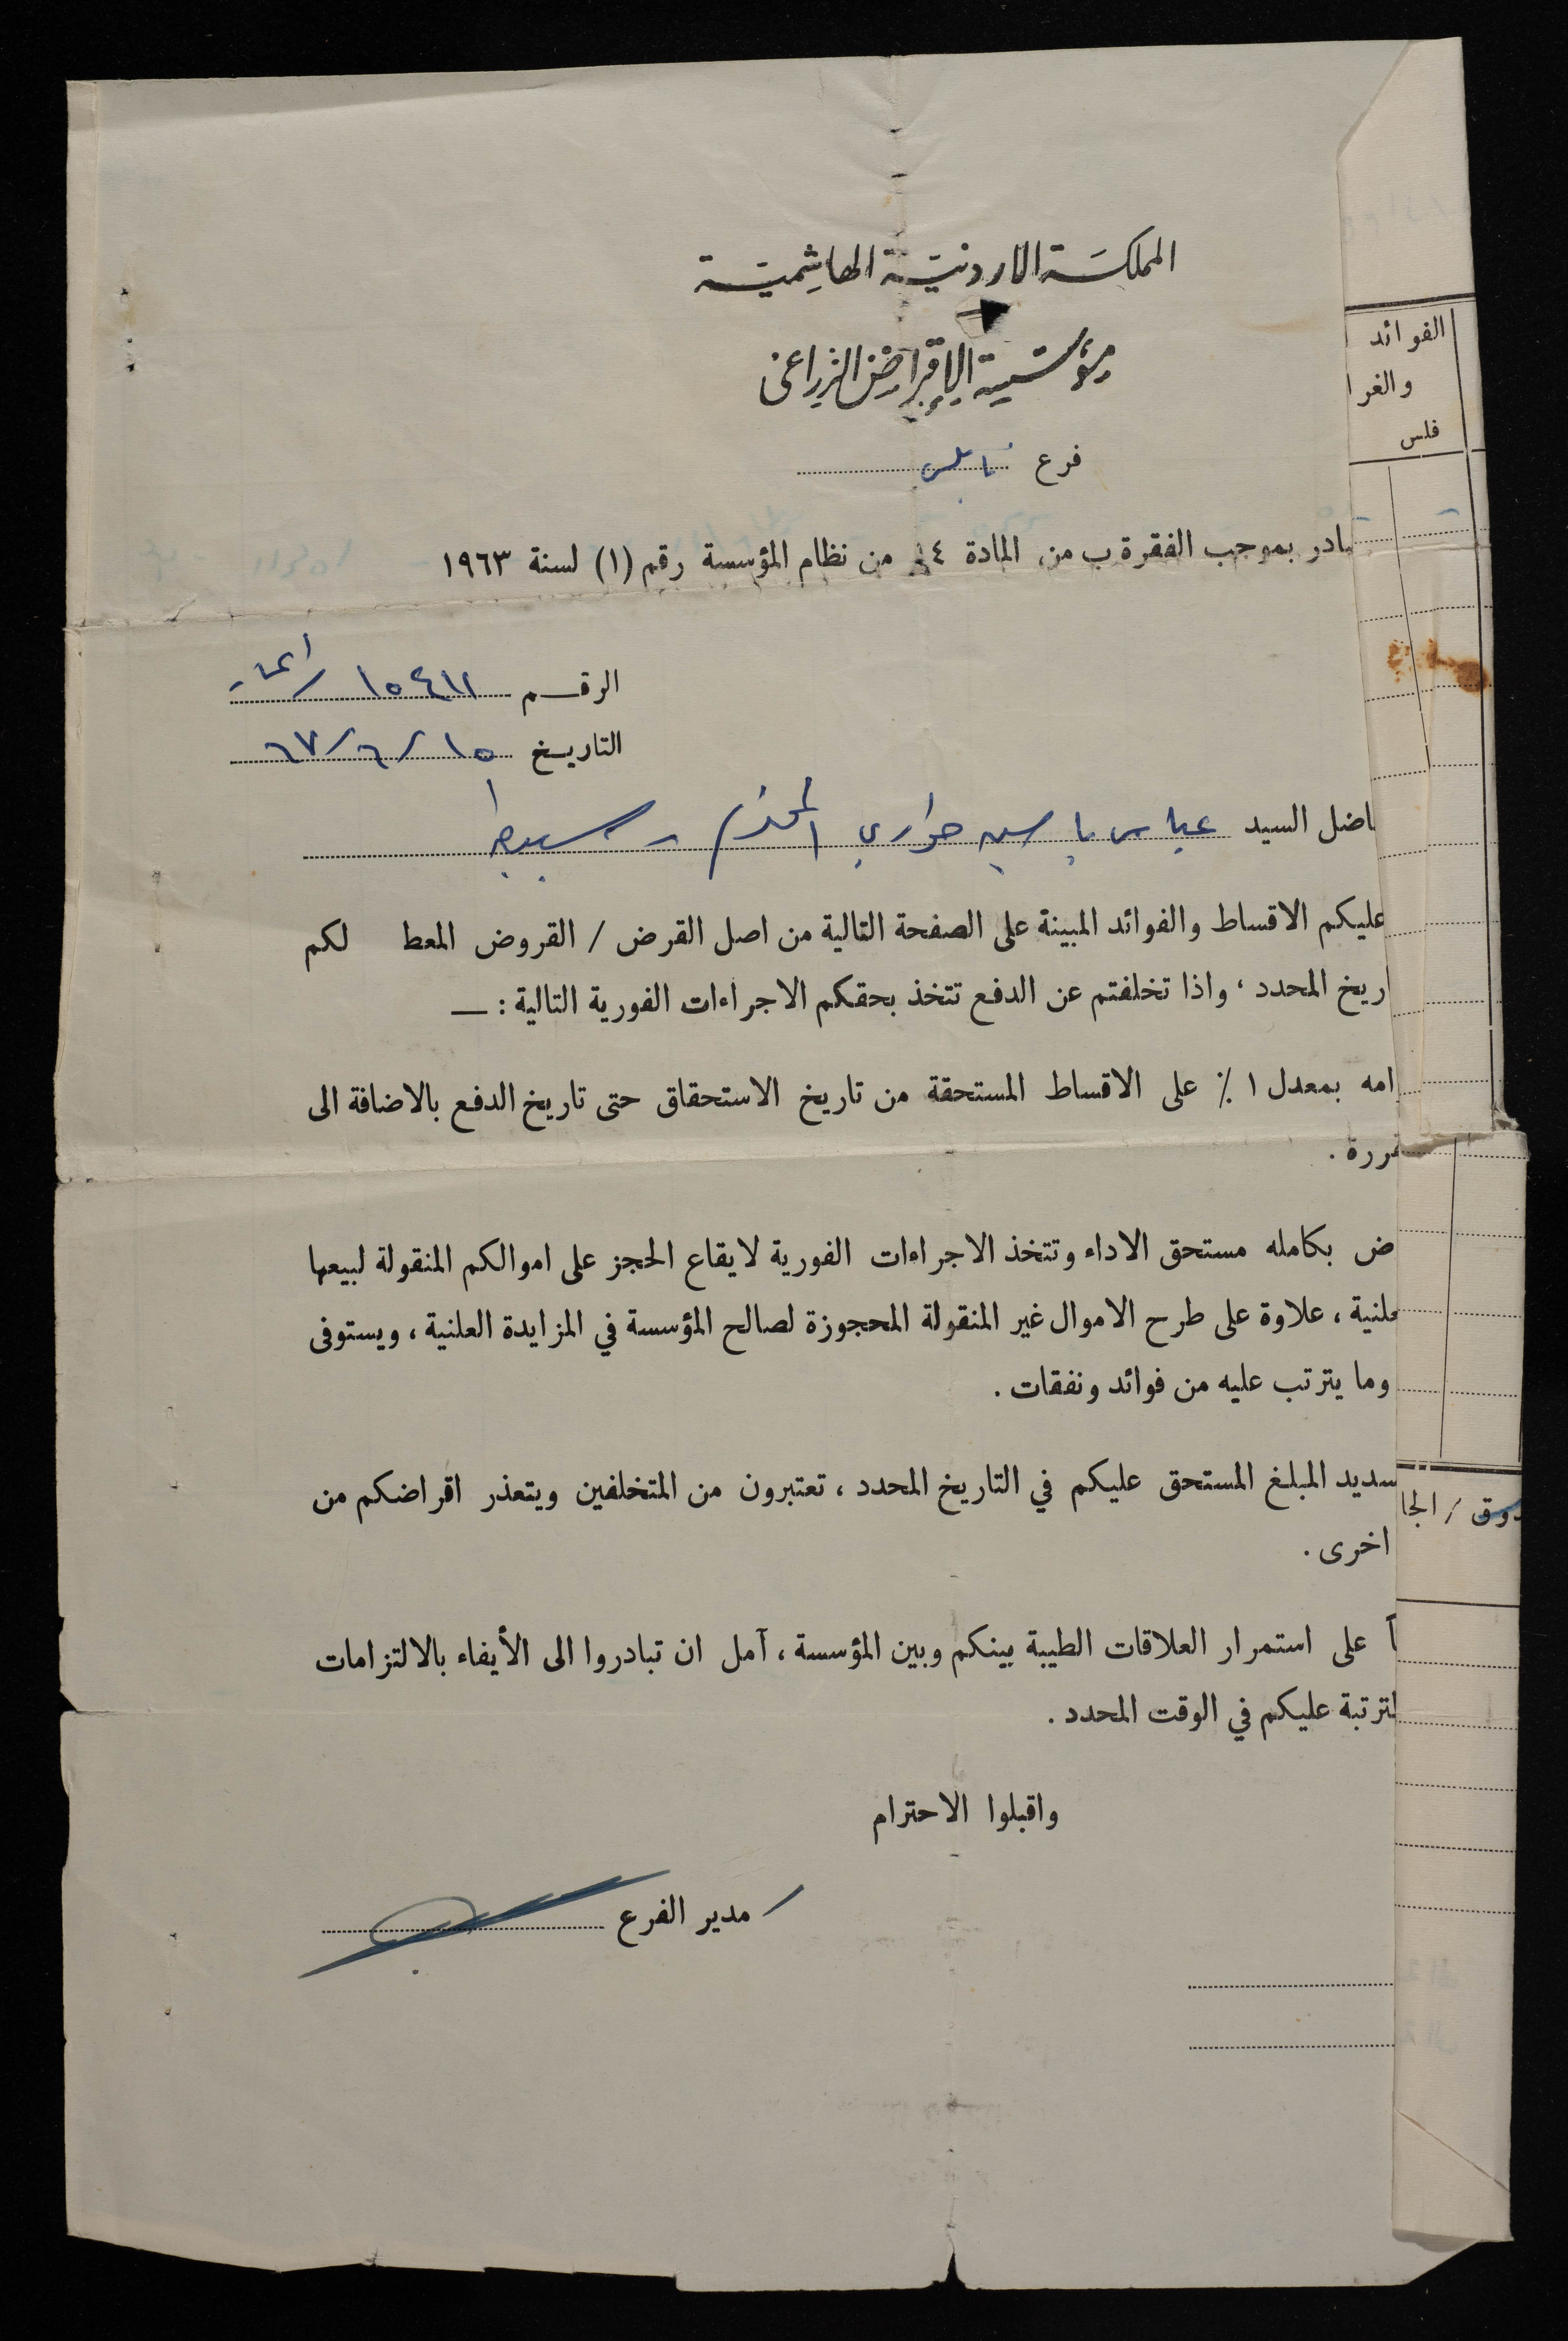 المملكة الاردنية الهاشمية
مؤسسة الإقراض الزراعي
فرع نابلس
ادر بموجب الفقرة ب من المادة ٤ من نظام المؤسسة رقم (١) لسنة ١٩٦٣
الرقم ١٥٤١١ /
التاريخ ١٥/٦/٦٧
اضل السيد عباس ياسين حواري المحترم - سبسطية
عليكم الاقساط والفوائد المبينة على الصفحة التالية من اصل القرض / القروض المعط لكم
اريخ المحدد ، واذا تخلفتم عن الدفع تتخذ بحقكم الاجراءات الفورية التالية : —
امه بمعدل ١ ٪ على الاقساط المستحقة من تاريخ الاستحقاق حتى تاريخ الدفع بالاضافة الى
قررة .
ض بكامله مستحق الاداء وتتخذ الاجراءات الفورية لايقاع الحجز على اموالكم المنقولة لبيعها
علنية ، علاوة على طرح الاموال غير المنقولة المحجوزة لصالح المؤسسة في المزايدة العلنية ، ويستوفى
وما يترتب عليه من فوائد ونفقات .
سديد المبلغ المستحق عليكم في التاريخ المحدد ، تعتبرون من المتخلفين ويتعذر اقراضكم من
اخرى .
اً على استمرار العلاقات الطيبة بينكم وبين المؤسسة ، آمل ان تبادروا الى الأيفاء بالالتزامات
لترتبة عليكم في الوقت المحدد .
واقبلوا الاحترام
مدير الفرع
الفوائد
والغرا
فلس
دوق / الجا